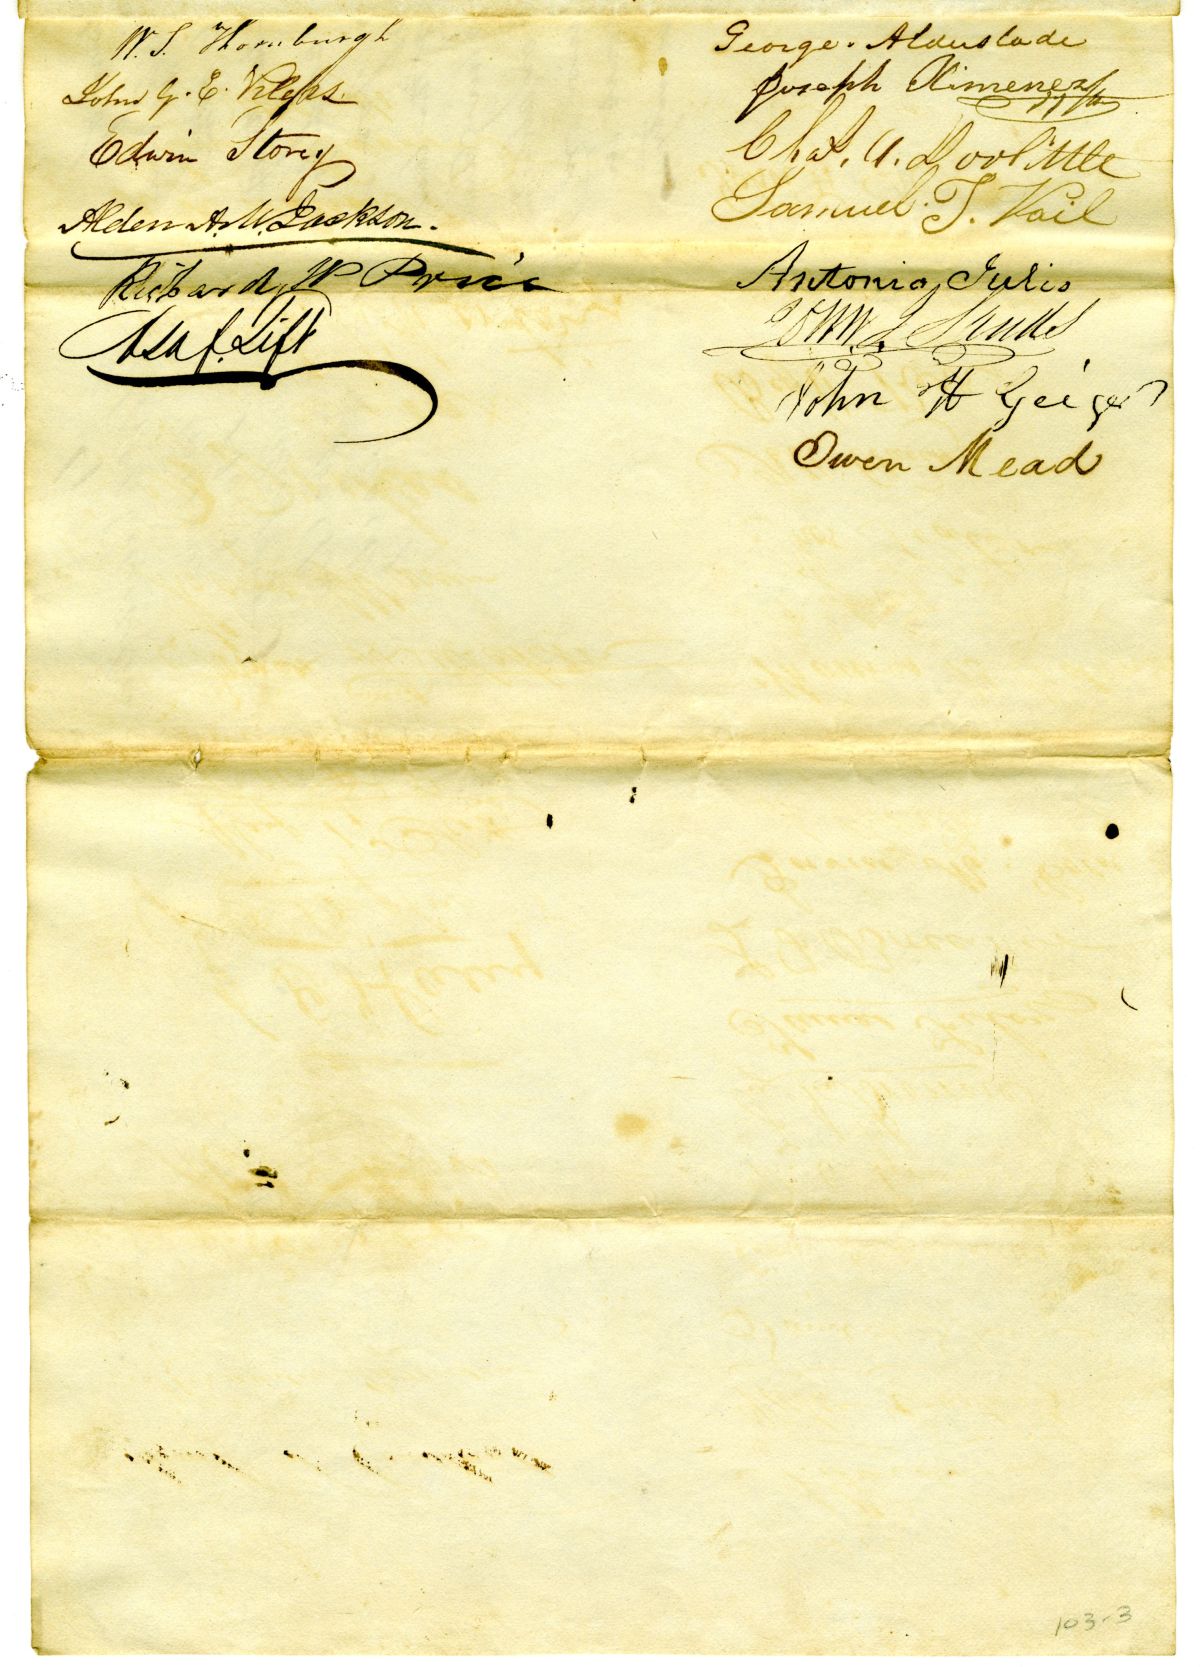 W. S. Thornburgh
John G. E.
Edwin Storey
Alden A. M. Jackson.
Richard W Price
Asa F. Tift
George. Alderslade
Joseph Ximenez
Chas. A. Doolittle
Samuel. T. Vail
Antonio Julio
John
John H Geiger
Owen Mead
103-3